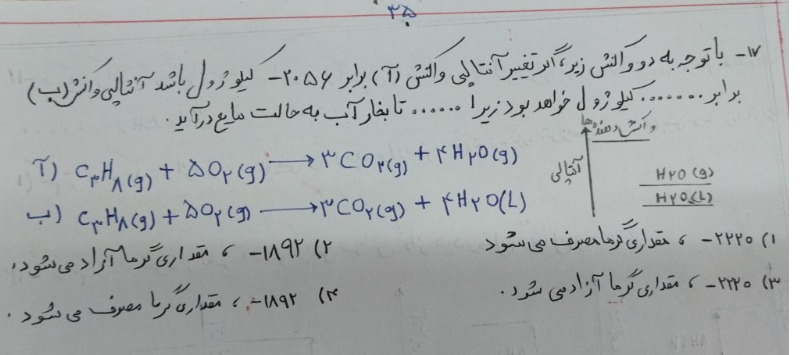 ۳۵
۱۷- با توجه به دو واکنش زیر، اگر تغییر آنتالپی واکنش (آ) برابر ۲۰۵۶- کیلوژول باشد آنتالپی واکنش (ب)
برابر ....... کیلوژول خواهد بود زیرا ...... تا بخار آب به حالت مایع درآید.
واکنش دهنده ها
آ) C۳H۸(g) + ۵O۲(g) → ۳CO۲(g) + ۴H۲O(g)
آنتالپی
H۲O(g)
H۲O(L)
ب) C۳H۸(g) + ۵O۲(g) → ۳CO۲(g) + ۴H۲O(L)
۱) ۲۲۲۰- ، مقداری گرما مصرف می شود
۲) ۱۸۹۲- ، مقداری گرما آزاد می شود.
۳) ۲۲۲۰- ، مقداری گرما آزاد می شود.
۴) ۱۸۹۲- ، مقداری گرما مصرف می شود.